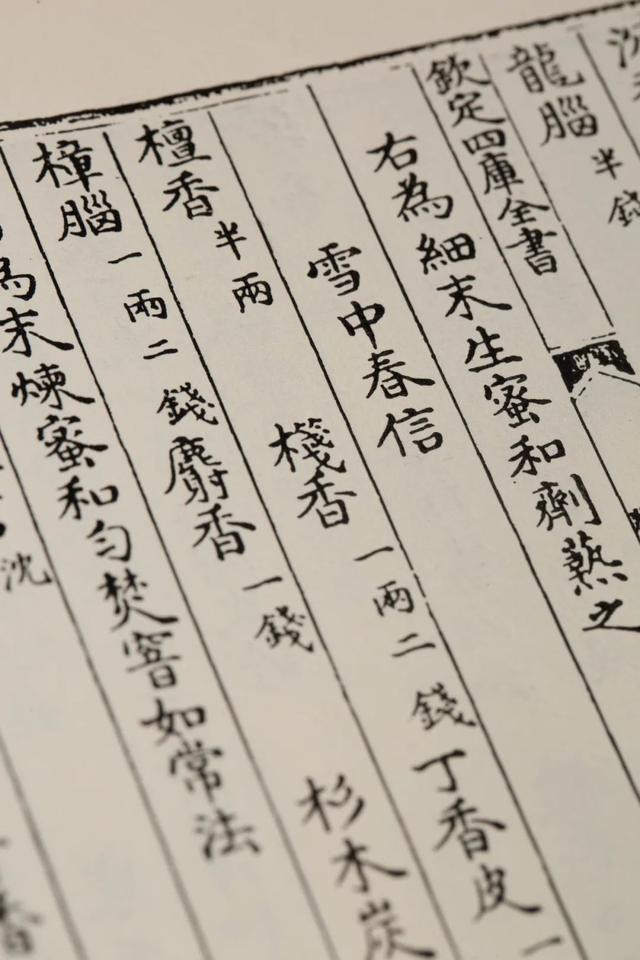 龍腦半錢
欽定四庫全書
右為細末生蜜和劑爇之
雪中春信
檀香半兩棧香一兩二錢丁香皮一
樟腦一兩二錢麝香一錢杉木炭
為末煉蜜和勻焚窨如常法
沈
香